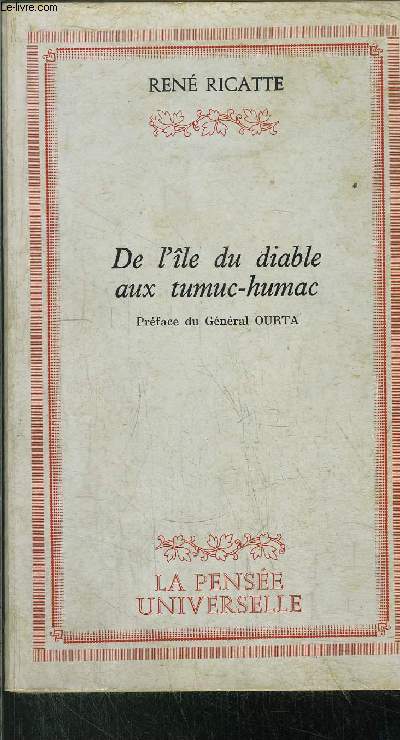 Le-livre.com
RENÉ RICATTE
De l'île du diable
aux tumuc-humac
Préface du Général OURTA
LA PENSÉE
UNIVERSELLE